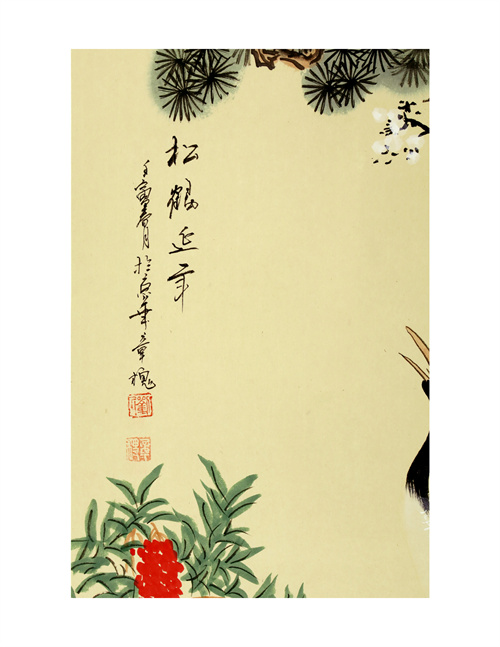 松鹤延年
壬寅春月於京華章槐